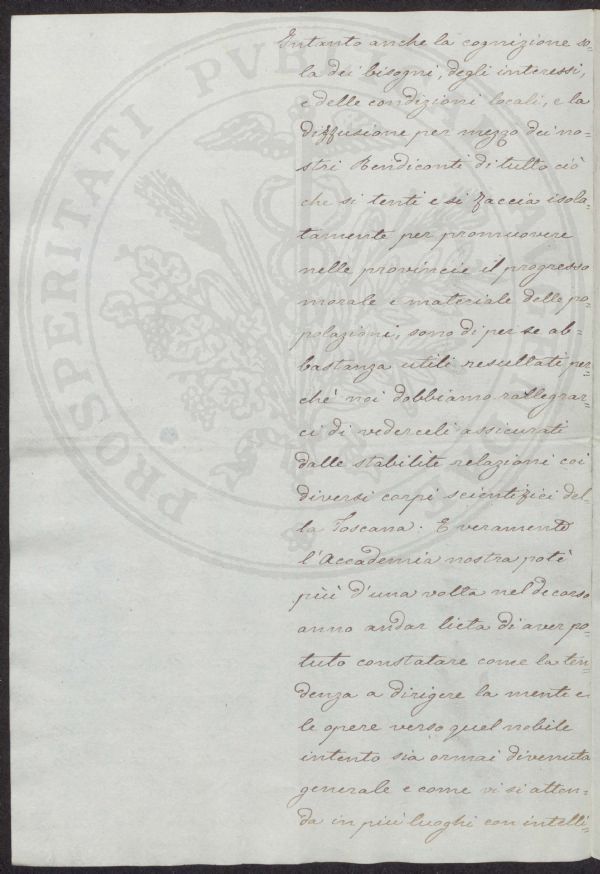 Intanto anche la cognizione so=
la dei bisogni, degli interessi,
e delle condizioni locali, e la
diffusione per mezzo dei no=
stri Rendiconti di tutto ciò
che si tenti e si faccia isola=
tamente per promuovere
nelle provincie il progresso
morale e materiale delle po=
polazioni, sono di per se ab=
bastanza utili resultati per=
chè noi dobbiamo rallegrar=
ci di vederceli assicurati
dalle stabilite relazioni coi
diversi corpi scientifici del=
la Toscana. E veramente
l'Accademia nostra potè
più d'una volta nel decorso
anno andar lieta di aver po=
tuto constatare come la ten=
denza a dirigere la mente e
le opere verso quel nobile
intento sia ormai divenuta
generale e come vi si atten=
da in più luoghi con intelli=
PROSPERITATI PVBLICAE